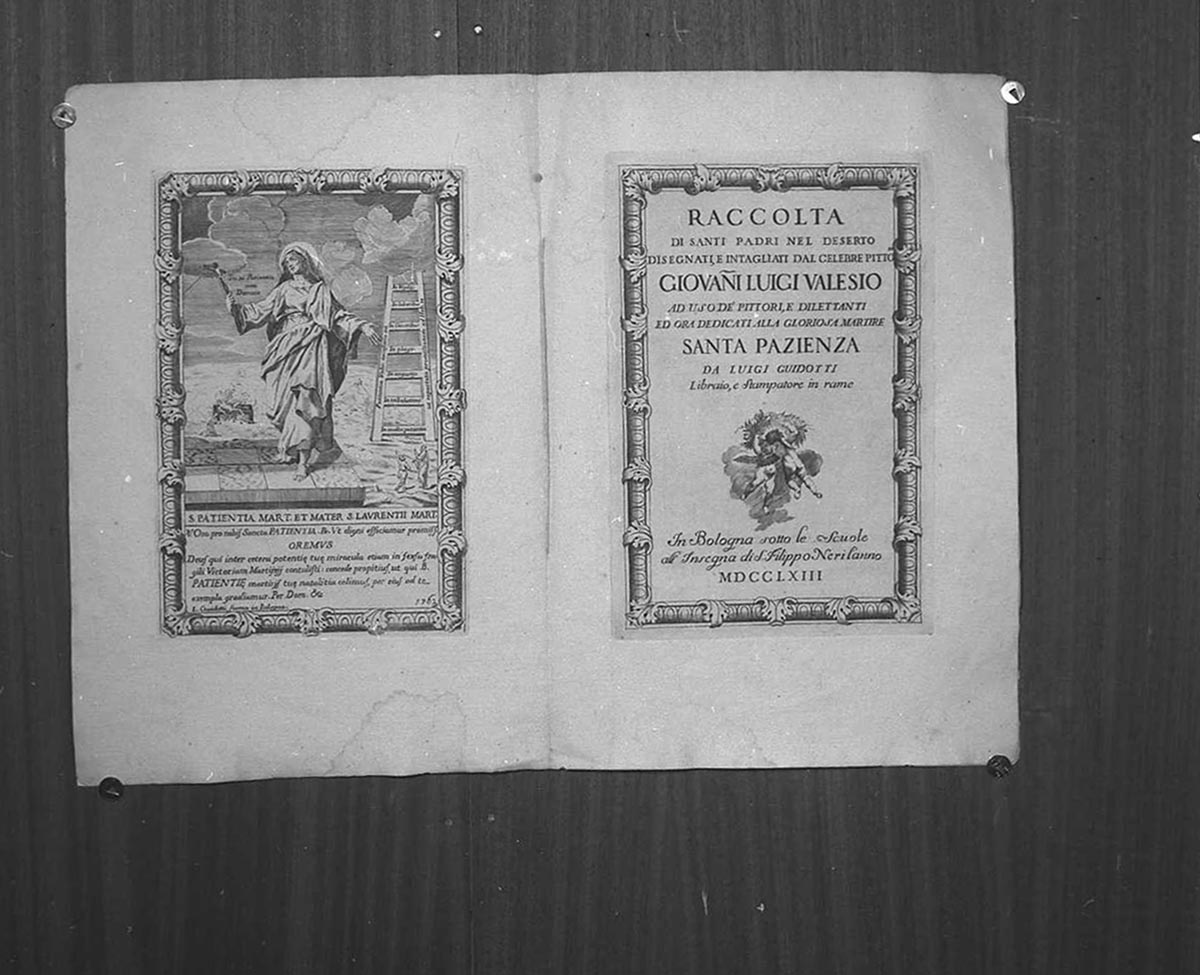 S. PATIENTIA MART. ET MATER S. LAVRENTII MART.
V. Ora pro nobis Sancta PATIENTIA. R. Vt digni efficiamur promiss.
OREMVS
Deus qui inter cetera potentię tuę miracula etiam in sexu fra
gili Victoriam Martyrij contulisti: concede propitius, ut qui B.
PATIENTIĘ martiris tuę natalitia colimus, per eius ad te
exempla gradiamur. Per Dom. &c
L. Guidotti forma in Bologna
1763
RACCOLTA
DI SANTI PADRI NEL DESERTO
DISEGNATI, E INTAGLIATI DAL CELEBRE PITTO
GIOVAÑI LUIGI VALESIO
AD USO DE' PITTORI, E DILETTANTI
ED ORA DEDICATI ALLA GLORIOSA MARTIRE
SANTA PAZIENZA
DA LUIGI GUIDOTTI
Libraio, e stampatore in rame
In Bologna sotto le Scuole
all' Insegna di S. Filippo Neri l'anno
MDCCLXIII